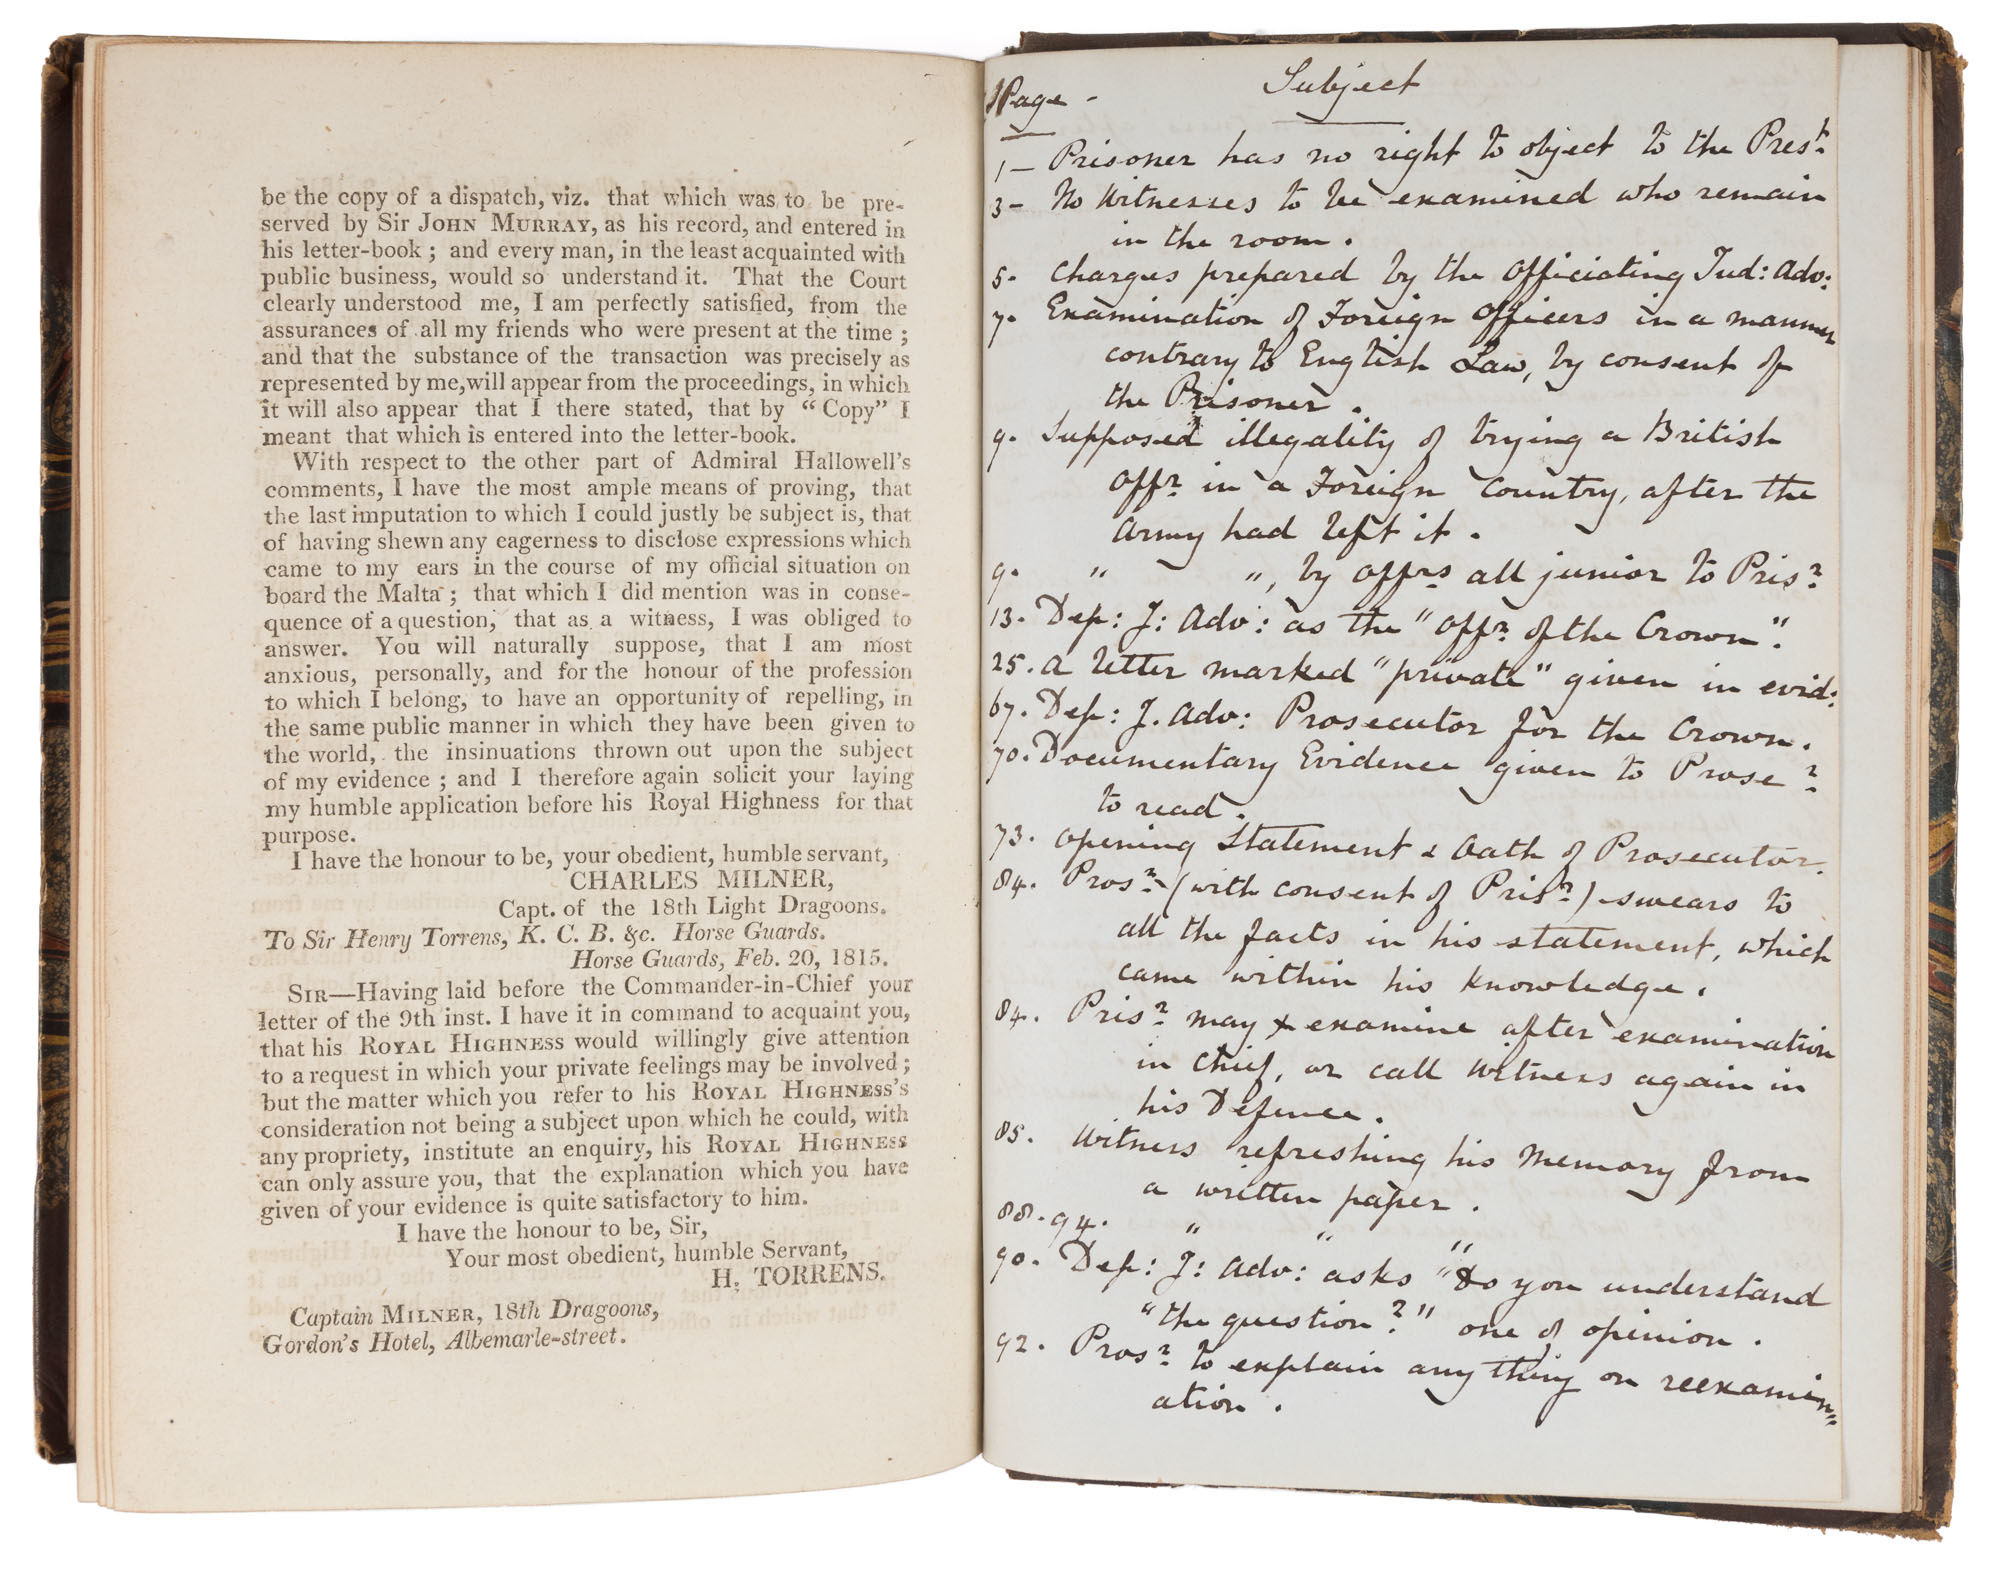 be the copy of a dispatch, viz. that which was to be pre-
served by Sir JOHN MURRAY, as his record, and entered in
his letter-book; and every man, in the least acquainted with
public business, would so understand it. That the Court
clearly understood me, I am perfectly satisfied, from the
assurances of all my friends who were present at the time;
and that the substance of the transaction was precisely as
represented by me, will appear from the proceedings, in which
it will also appear that I there stated, that by "Copy" I
meant that which is entered into the letter-book.
With respect to the other part of Admiral Hallowell's
comments, I have the most ample means of proving, that
the last imputation to which I could justly be subject is, that
of having shewn any eagerness to disclose expressions which
came to my ears in the course of my official situation on
board the Malta; that which I did mention was in conse-
quence of a question, that as a witness, I was obliged to
answer. You will naturally suppose, that I am most
anxious, personally, and for the honour of the profession
to which I belong, to have an opportunity of repelling, in
the same public manner in which they have been given to
the world, the insinuations thrown out upon the subject
of my evidence; and I therefore again solicit your laying
my humble application before his Royal Highness for that
purpose.
I have the honour to be, your obedient, humble servant,
CHARLES MILNER,
Capt. of the 18th Light Dragoons.
To Sir Henry Torrens, K. C. B. &c. Horse Guards.
Horse Guards, Feb. 20, 1815.
SIR—Having laid before the Commander-in-Chief your
letter of the 9th inst. I have it in command to acquaint you,
that his ROYAL HIGHNESS would willingly give attention
to a request in which your private feelings may be involved;
but the matter which you refer to his ROYAL HIGHNESS's
consideration not being a subject upon which he could, with
any propriety, institute an enquiry, his ROYAL HIGHNESS
can only assure you, that the explanation which you have
given of your evidence is quite satisfactory to him.
I have the honour to be, Sir,
Your most obedient, humble Servant,
H. TORRENS.
Captain MILNER, 18th Dragoons,
Gordon's Hotel, Albemarle-street.
Page - Subject
1 - Prisoner has no right to object to the Prest.
3 - No Witnesses to be examined who remain
in the room.
5. Charges prepared by the Officiating Jud: Adv:
7. Examination of Foreign Officers in a manner
contrary to English Law, by consent of
the Prisoner.
9. Supposed illegality of trying a British
Offr. in a Foreign Country, after the
Army had left it.
9. " ", by Offrs all junior to Prisr.
13. Dep: J: Adv: as the "Offr. of the Crown".
25. A letter marked "private" given in evid:
67. Dep: J. Adv: Prosecutor for the Crown.
70. Documentary Evidence given to Prosr.
to read.
73. Opening Statement & Oath of Prosecutor.
84. Prosr. (with consent of Prisr.) swears to
all the facts in his statement, which
came within his knowledge.
84. Prisr. may x examine after examination
in Chief, or call Witness again in
his Defence.
85. Witness refreshing his memory from
a written paper.
88. 94. " " "
90. Dep: J: Adv: asks "Do you understand
"the question?" one of opinion.
92. Prosr. to explain anything on reexamin=
ation.